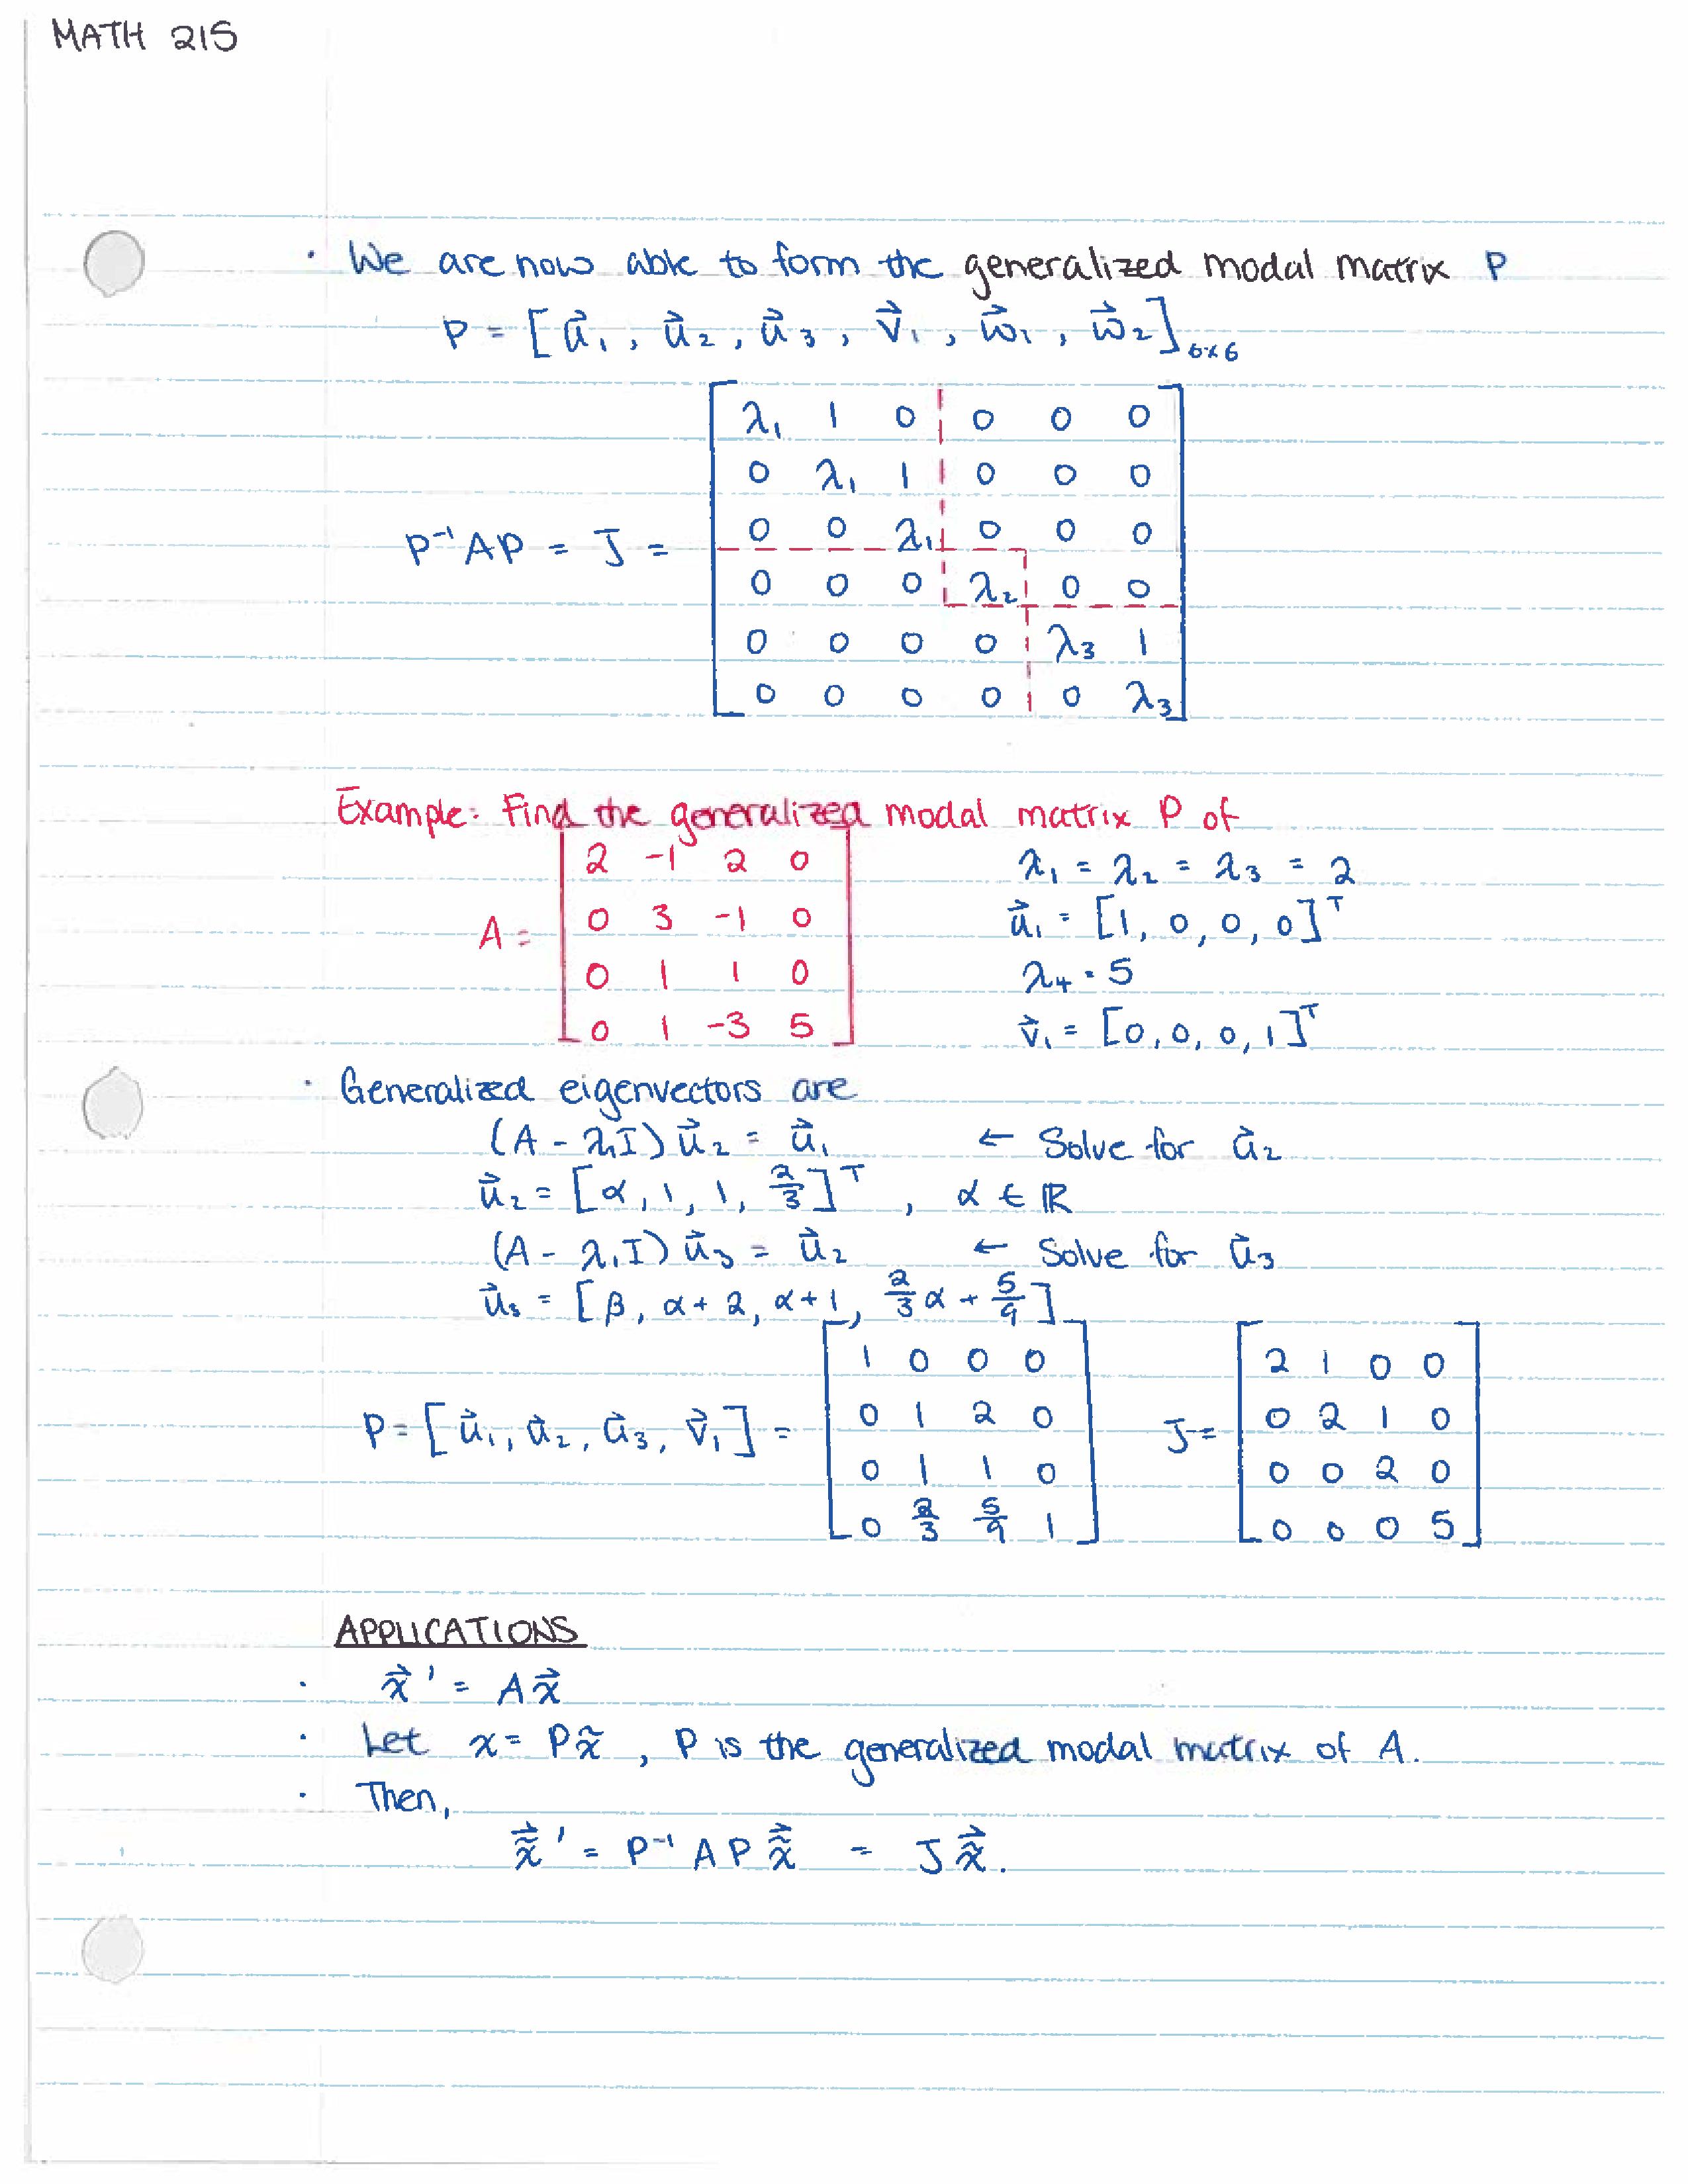 MATH 215
· We are now able to form the generalized modal matrix P
P = [u⃗₁, u⃗₂, u⃗₃, v⃗₁, w⃗₁, w⃗₂]₆ₓ₆
λ₁ 1 0 0 0 0
0 λ₁ 1 0 0 0
0 0 λ₁ 0 0 0
P⁻¹AP = J =
0 0 0 λ₂ 0 0
0 0 0 0 λ₃ 1
0 0 0 0 0 λ₃
Example: Find the generalized modal matrix P of
2 -1 2 0 λ₁ = λ₂ = λ₃ = 2
A = 0 3 -1 0 u⃗₁ = [1, 0, 0, 0]ᵀ
0 1 1 0 λ₄ = 5
0 1 -3 5 v⃗₁ = [0, 0, 0, 1]ᵀ
· Generalized eigenvectors are
(A - λ₁I) u⃗₂ = u⃗₁ ← Solve for u⃗₂
u⃗₂ = [α, 1, 1, 2/3]ᵀ, α ∈ ℝ
(A - λ₁I) u⃗₃ = u⃗₂ ← Solve for u⃗₃
u⃗₃ = [β, α+2, α+1, 2/3 α + 5/9]
1 0 0 0 2 1 0 0
P = [u⃗₁, u⃗₂, u⃗₃, v⃗₁] = 0 1 2 0 J = 0 2 1 0
0 1 1 0 0 0 2 0
0 2/3 5/9 1 0 0 0 5
APPLICATIONS
· x⃗' = Ax⃗
· Let x = Px̃, P is the generalized modal matrix of A.
· Then,
x̃⃗' = P⁻¹APx̃⃗ = Jx̃⃗.